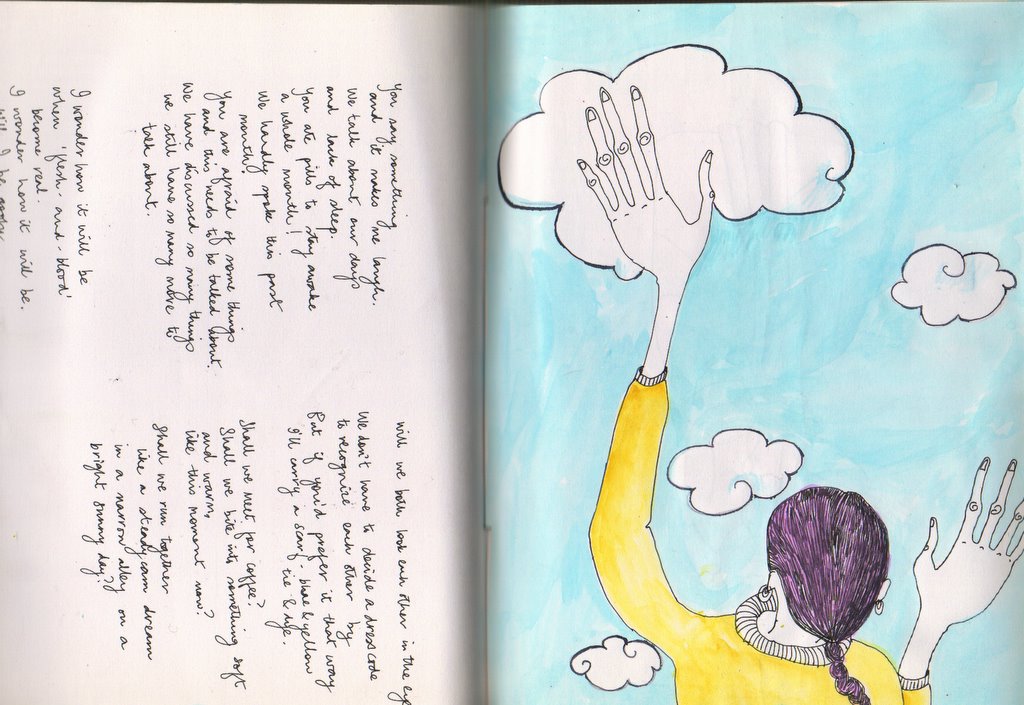 You say something
and it makes me laugh.
We talk about our days
and lack of sleep.
You ate pills to stay awake
a whole month!
We hardly spoke this past
month!
You are afraid of some things
and this needs to be talked about.
We have discussed so many things
we still have so many more to
talk about.
I wonder how it will be
when 'flesh-and-blood'
become real.
I wonder how it will be.
will I be
will we both look each other in the eye
We don't have to decide a dresscode
to recognize each other by
But if you'd prefer it that way
I'll carry a scarf - blue & yellow
tie & dye.
Shall we meet for coffee?
Shall we bite into something soft
and warm,
like this moment now?
Shall we run together
like a steadycam dream
in a narrow alley on a
bright sunny day?